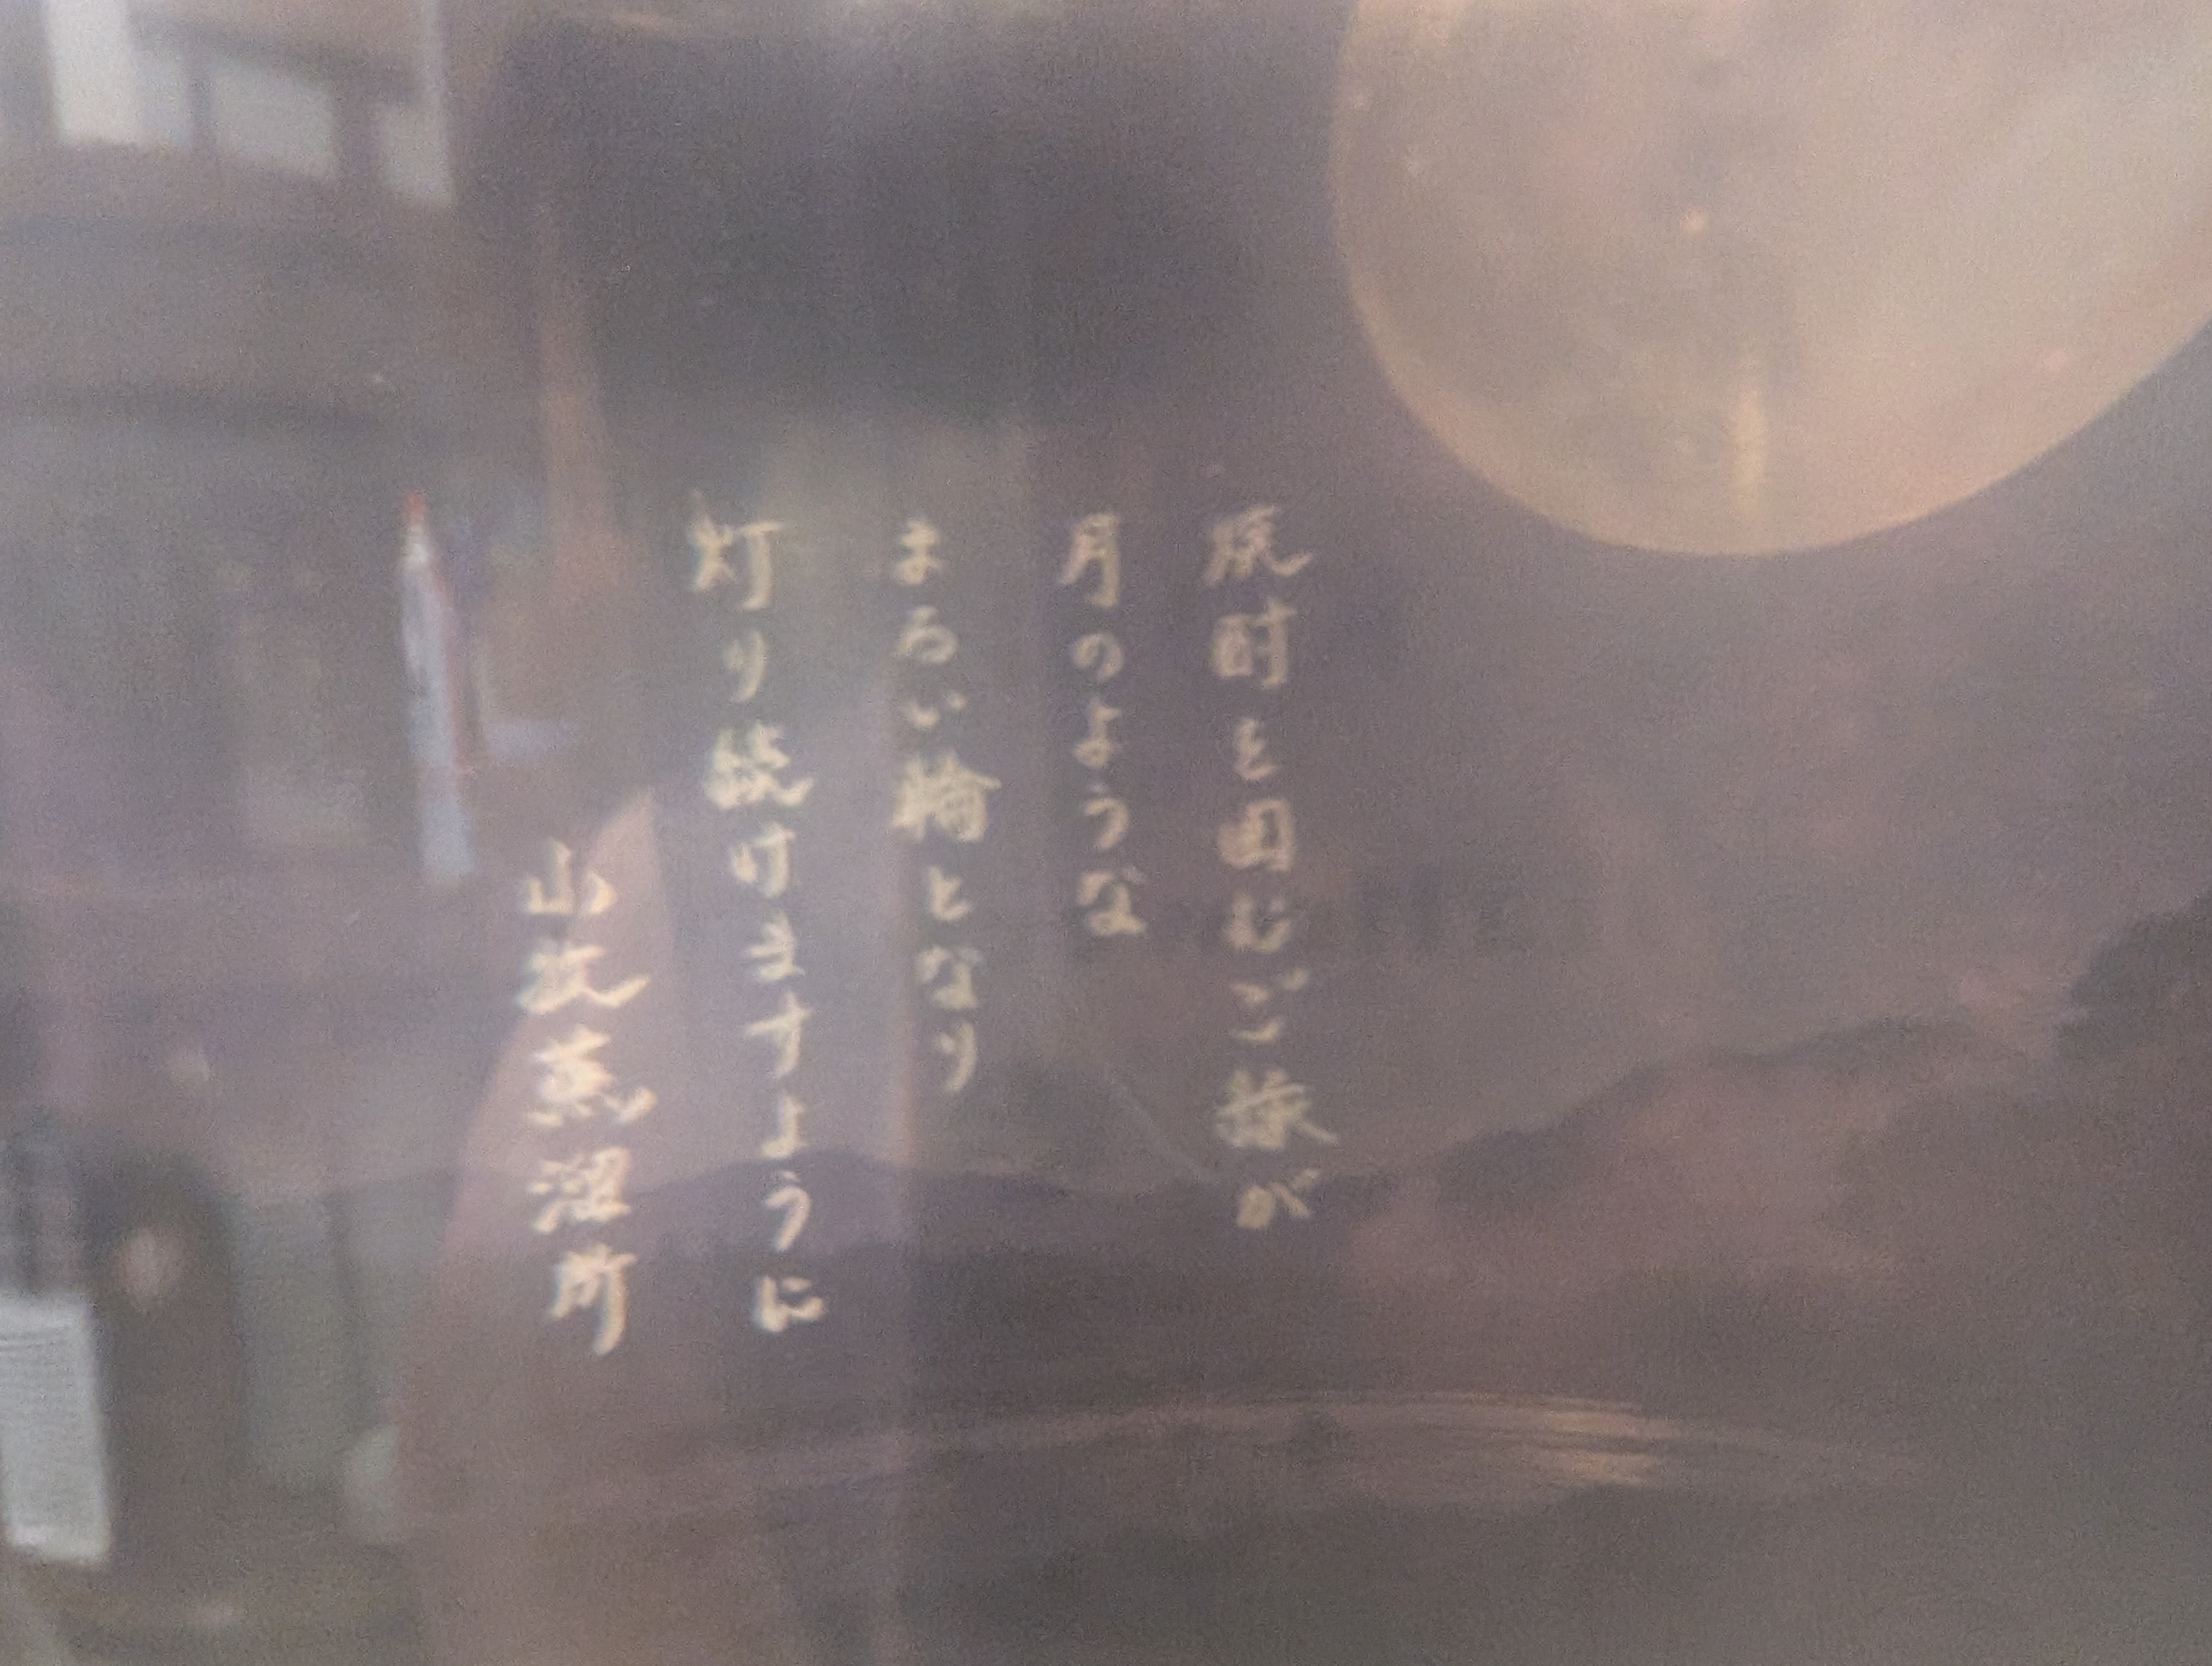 焼酎を囲むご縁が
月のような
まるい輪となり
灯り続けますように
蒸溜所